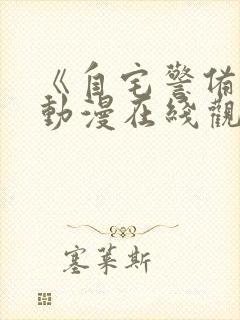 《自宅警備
動漫在綫觀
塞萊斯